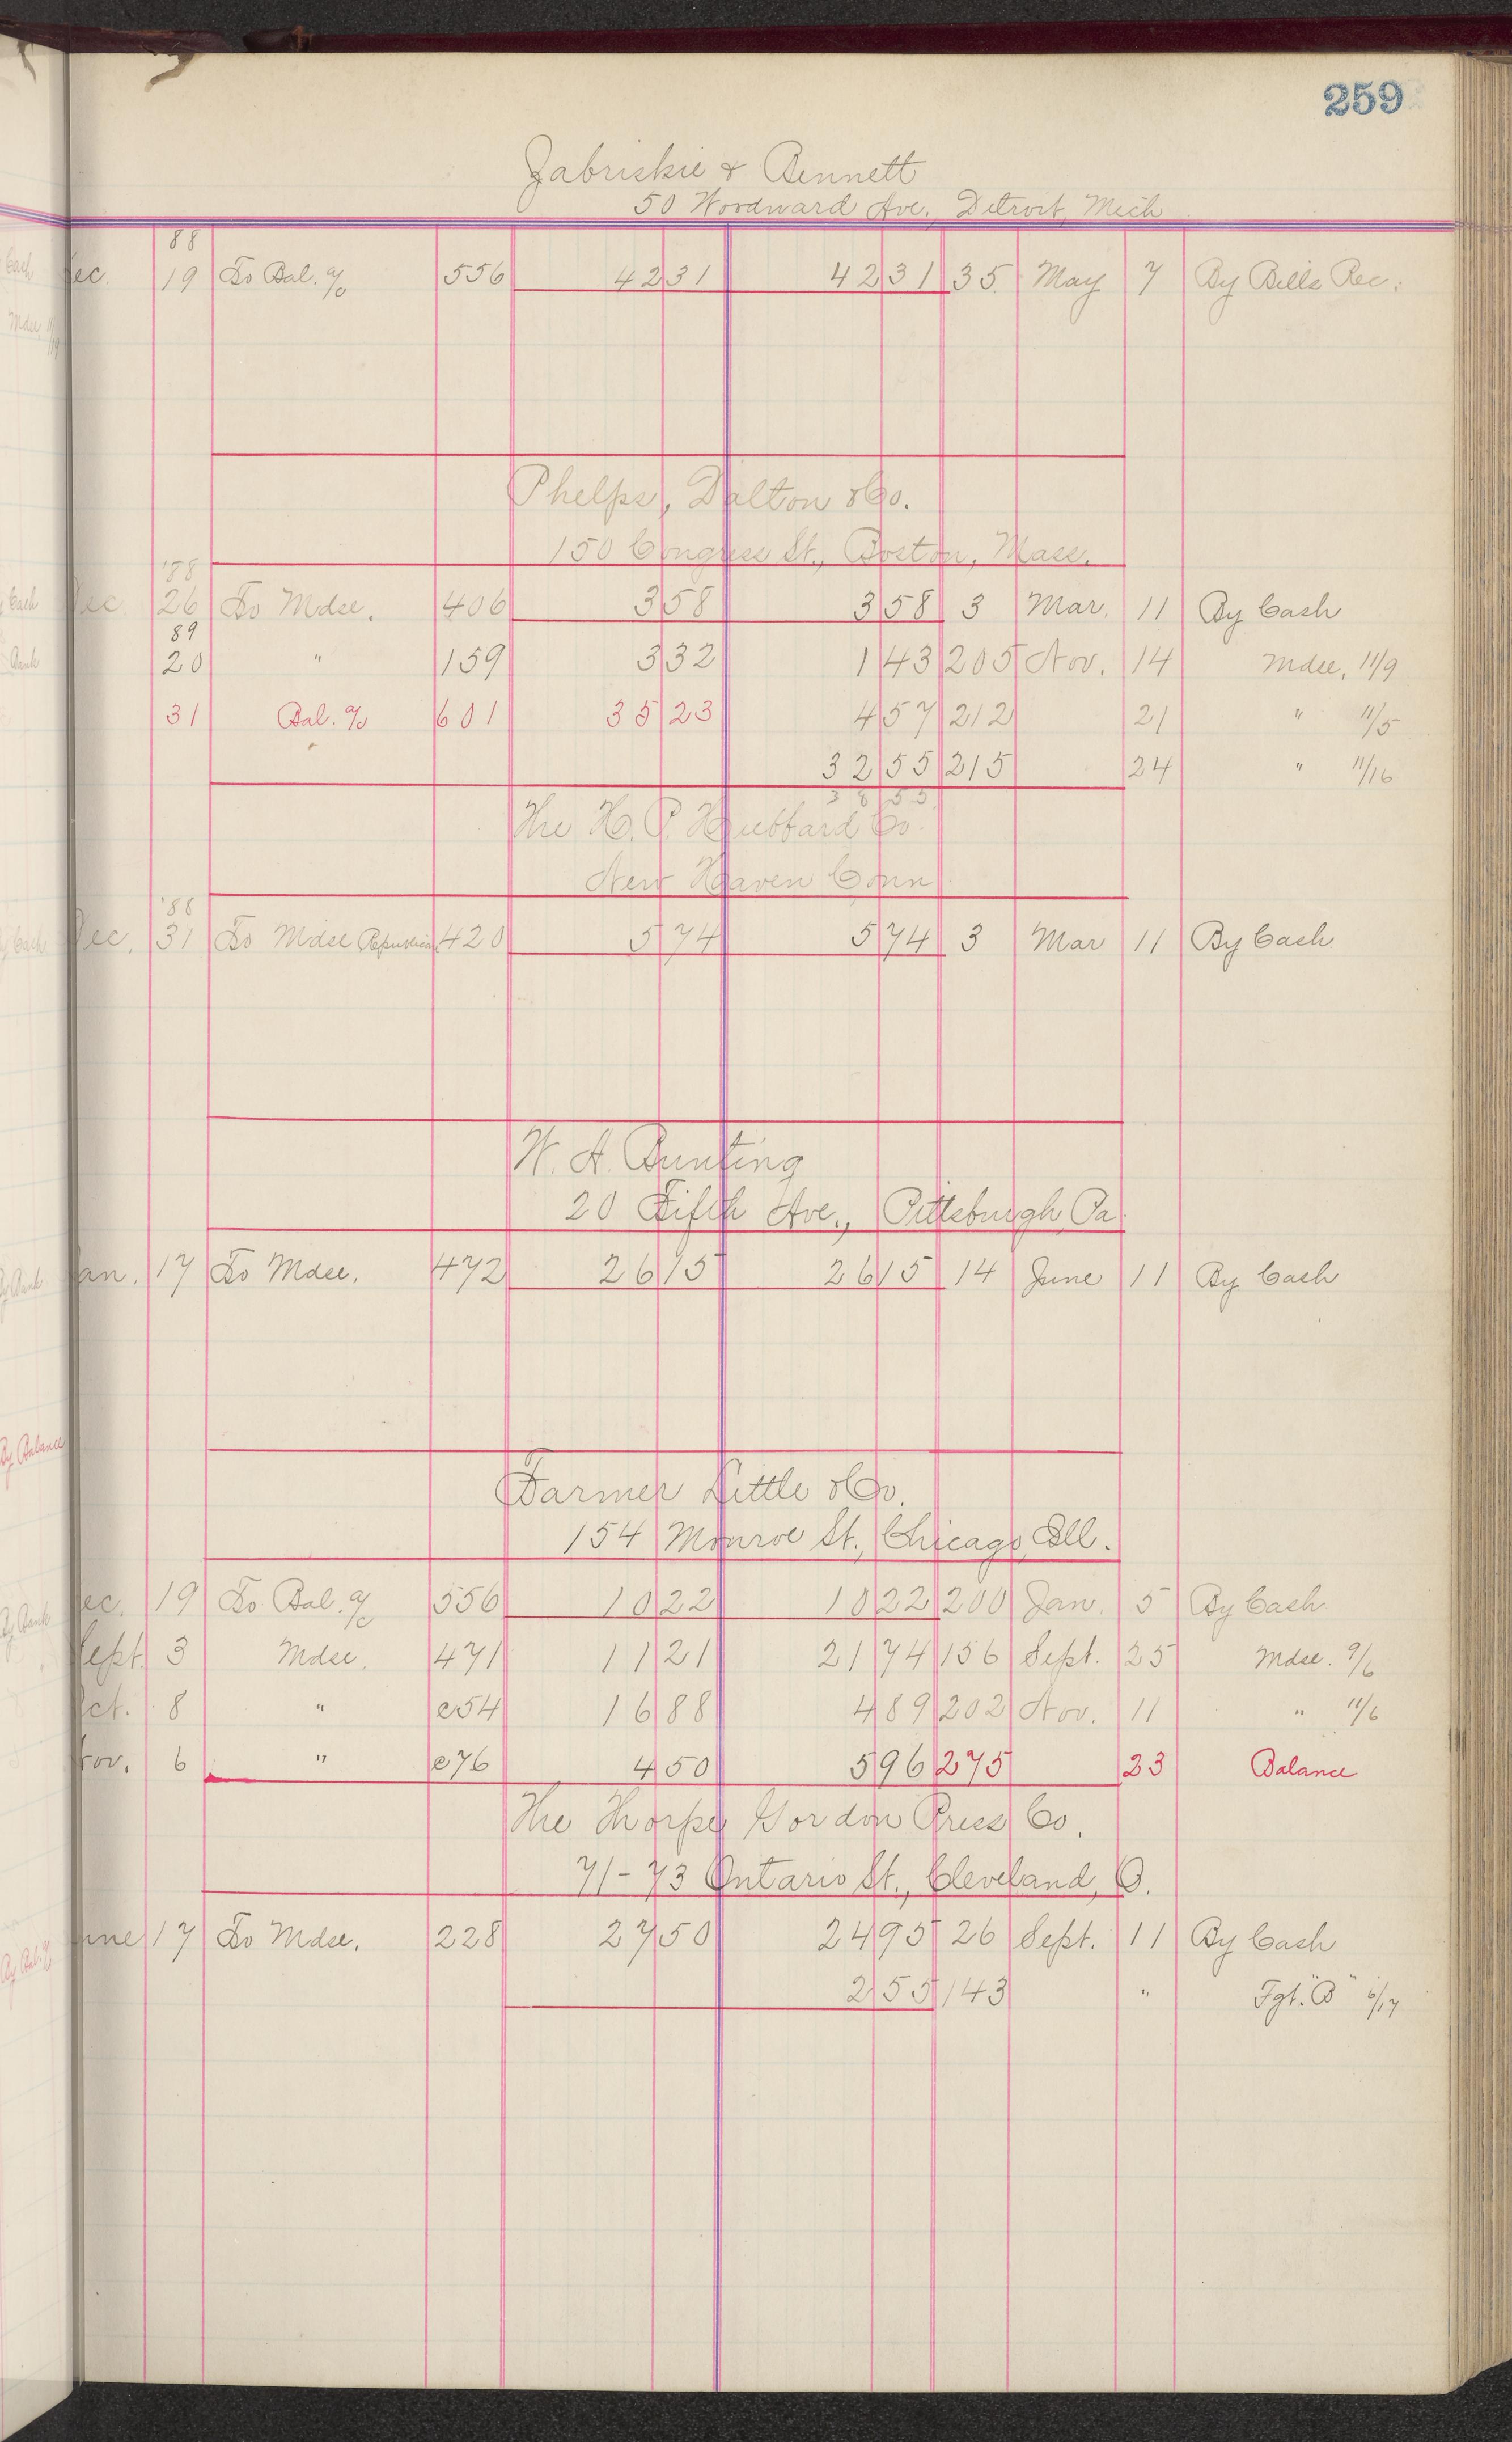 259
Zabriskie & Bennett
50 Woodward Ave., Detroit, Mich
88
ec. 19 To Bal. a/c 556 42 31 42 31 35 May 7 By Bills Rec.
Phelps, Dalton & Co.
150 Congress St., Boston, Mass.
'88
Dec 26 To Mdse. 406 3 58 3 58 3 Mar. 11 By Cash
89
20 " 159 3 32 1 43 205 Nov. 14 Mdse, 11/9
31 Bal. a/c 601 35 23 4 57 212 21 " 11/5
32 55 215 24 " 11/16
38 55
The H. P. Hubbard Co.
New Haven Conn
'88
Dec. 31 To Mdse Republican 420 5 74 5 74 3 Mar 11 By Cash
W. A. Bunting
20 Fifth Ave., Pittsburgh, Pa.
an. 17 To Mdse. 472 26 15 26 15 14 June 11 By Cash
Farmer Little & Co.
154 Monroe St., Chicago, Ill.
ec. 19 To Bal. a/c 556 10 22 10 22 200 Jan. 5 By Cash
Sept. 3 Mdse. 471 11 21 21 74 156 Sept. 25 Mdse. 9/6
ct. 8 " e54 16 88 4 89 202 Nov. 11 " 11/6
ov. 6 " e76 4 50 5 96 275 23 Balance
The Thorpe Gordon Press Co.
71-73 Ontario St., Cleveland, O.
une 17 To Mdse. 228 27 50 24 95 26 Sept. 11 By Cash
2 55 143 " Fgt. "B" 6/17